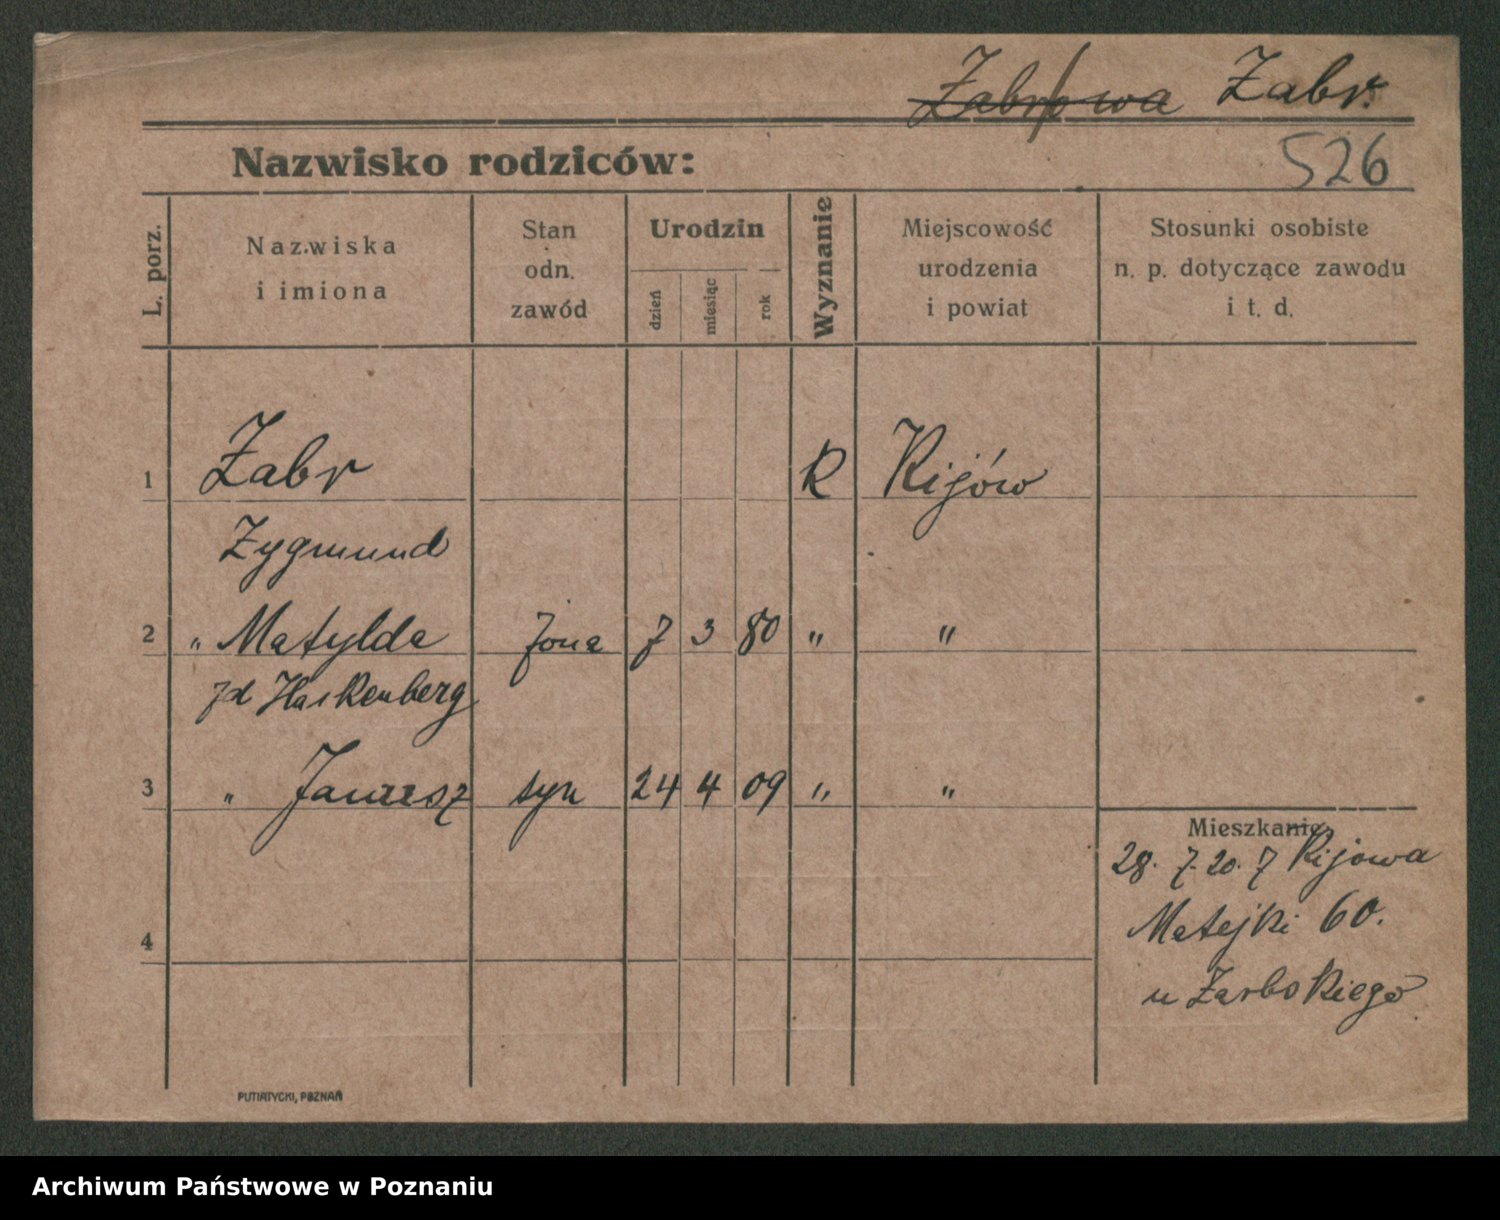 Żabrowa Żabr.
Nazwisko rodziców:
526
L. porz.
Nazwiska
i imiona
Stan
odn.
zawód
Urodzin
dzień
miesiąc
rok
Wyznanie
Miejscowość
urodzenia
i powiat
Stosunki osobiste
n. p. dotyczące zawodu
i t. d.
1 Żabr R Kijów
Zygmund
2 " Matylda żona 7 3 80 " "
zd
3 " syn 24 4 09 " "
Mieszkanie
28. 7. 20. z Kijowa
Matejki 60.
u
4
PUTIATYCKI, POZNAŃ
Archiwum Państwowe w Poznaniu